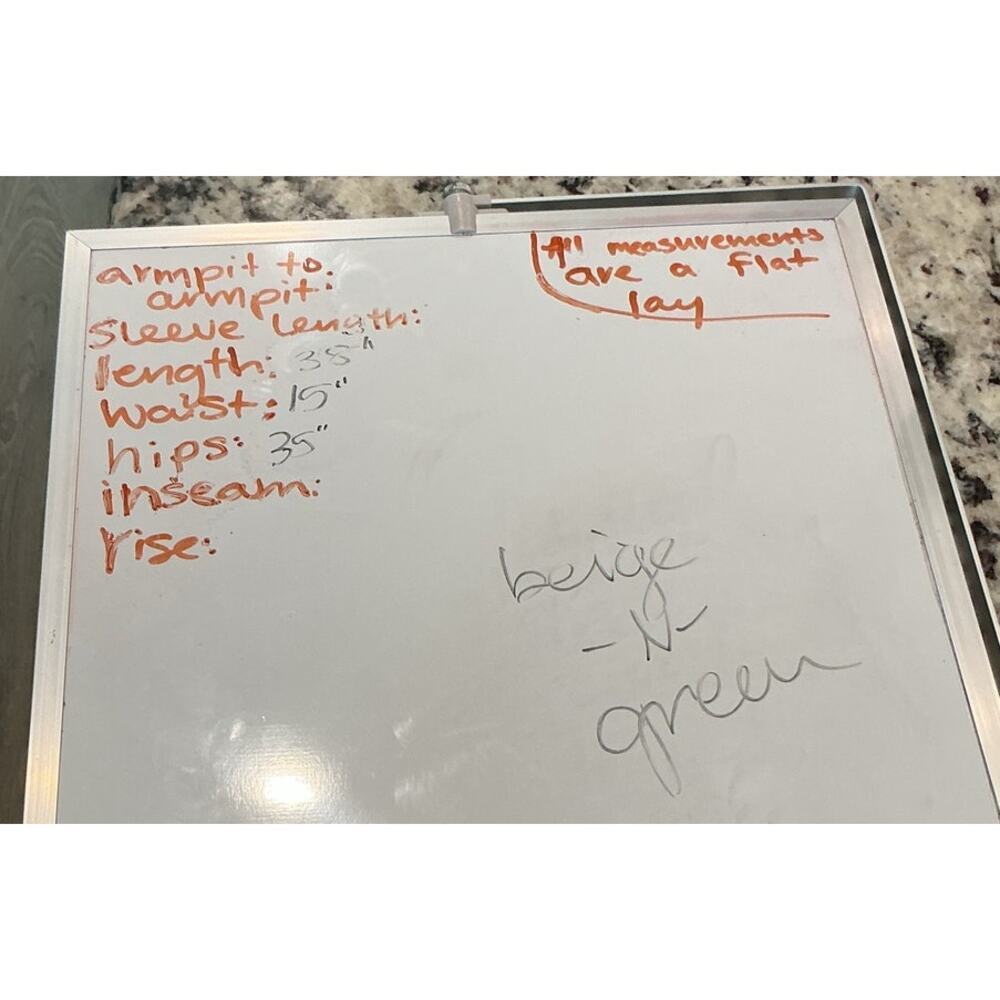 armpit to.
armpit:
sleeve length:
length: 38"
waist: 15"
hips: 35"
inseam:
rise:
All measurements
are a flat
lay
beige
-N-
green